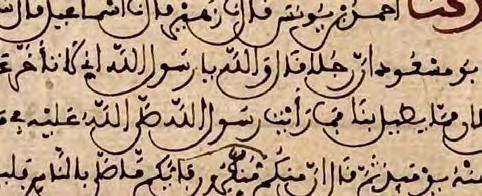 حدثنا احمد بن يونس قال نا زهير قال نا اسماعيل قال
بو مسعود ان رجلا قال والله يا رسول الله اني لاتاخر
مما يطيل بنا فما رايت رسول الله صلى الله عليه في
منه يومئذ ثم قال ان منكم منفرين فايكم ما صلى بالناس